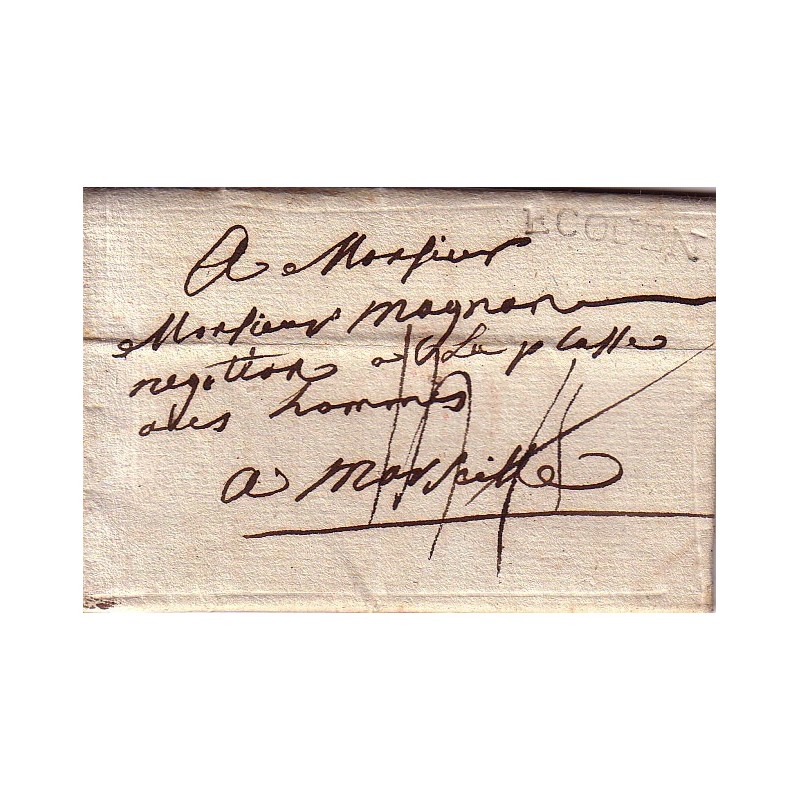 ECOUEN
A Monsieur
Monsieur magnan
negotian a La plasse
des hommes
a Marseille